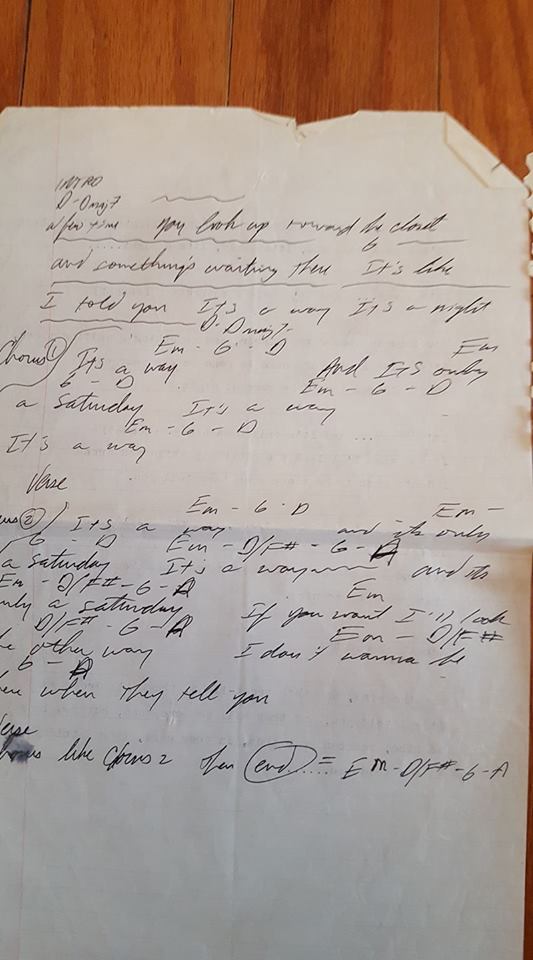 INTRO
D - Dmaj7
a few times you look up toward the closet
G
and something's waiting there It's like
I told you It's a way It's a night
D - Dmaj7
Em - G - D Em
Chorus 1 It's a way And it's only
G - D Em - G - D
a Saturday It's a way
Em - G - D
It's a way
Verse
Em - G - D Em -
us 2 It's a way and its only
G - D Em - D/F# - G - A
a saturday It's a way and its
Em - D/F# - G - A Em
only a saturday If you want I'll look
D/F# - G - A Em - D/F#
he other way I don't wanna be
G - A
ere when they tell you
erse
horus like Chorus 2 then end ..... = Em - D/F# - G - A